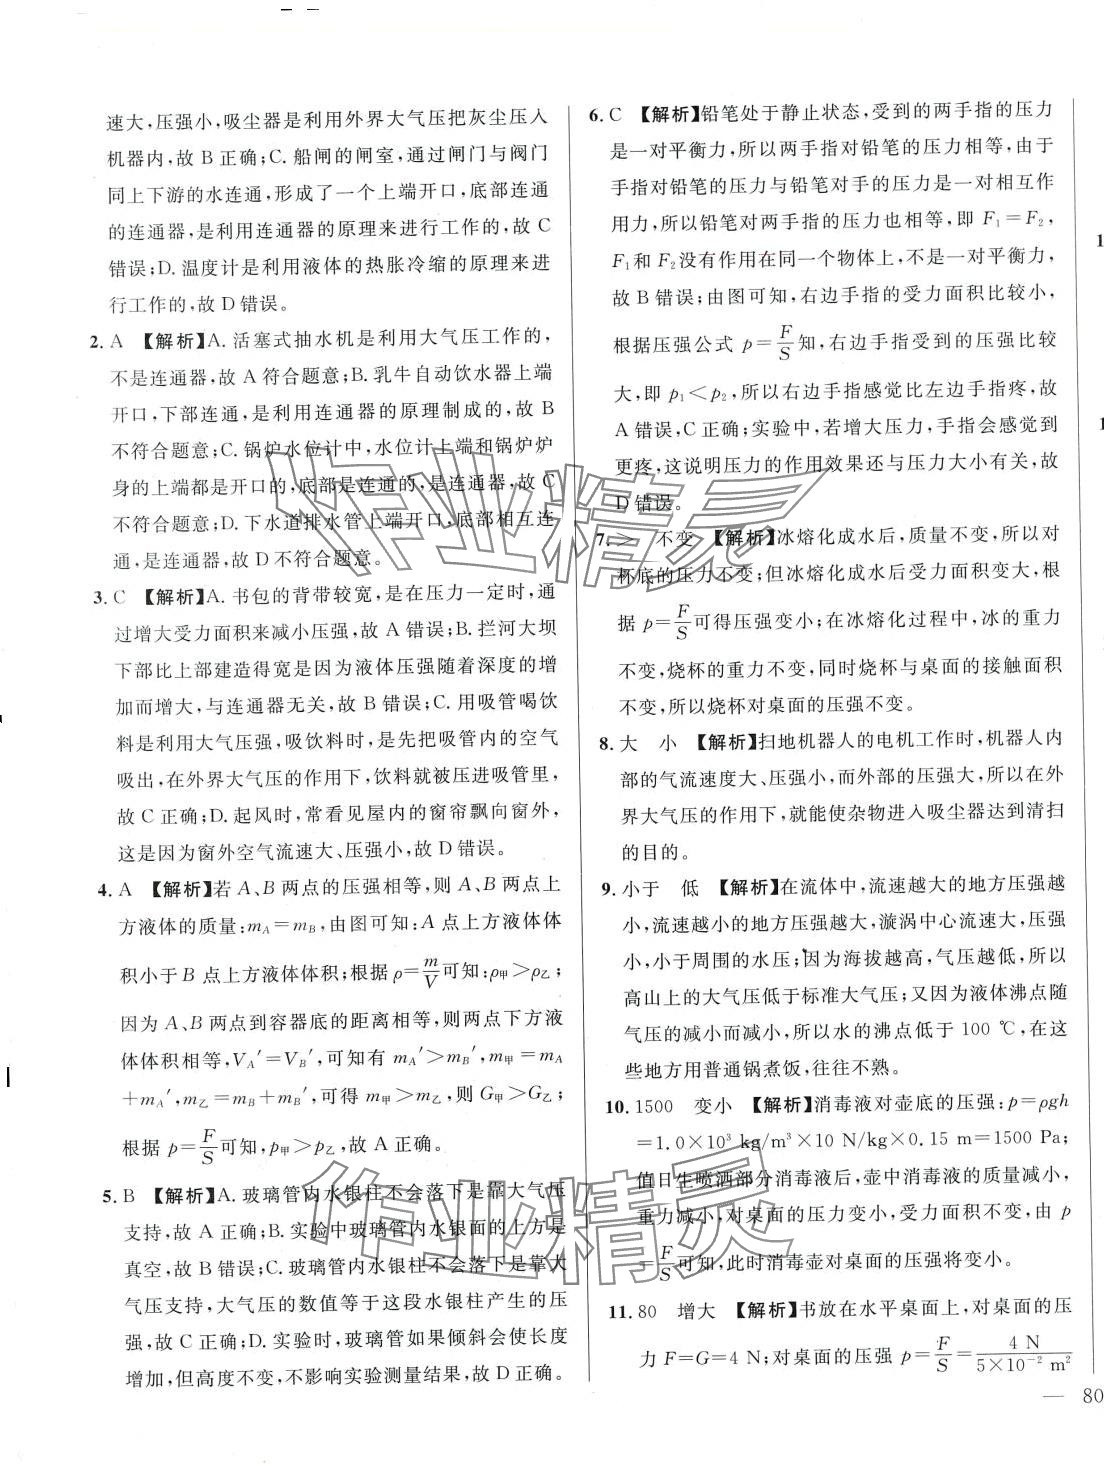 速大,压强小,吸尘器是利用外界大气压把灰尘压入
机器内,故 B 正确;C. 船闸的闸室,通过闸门与阀门
同上下游的水连通,形成了一个上端开口,底部连通
的连通器,是利用连通器的原理来进行工作的,故 C
错误;D. 温度计是利用液体的热胀冷缩的原理来进
行工作的,故 D 错误。
2. A 【解析】A. 活塞式抽水机是利用大气压工作的,
不是连通器,故 A 符合题意;B. 乳牛自动饮水器上端
开口,下部连通,是利用连通器的原理制成的,故 B
不符合题意;C. 锅炉水位计中,水位计上端和锅炉炉
身的上端都是开口的,底部是连通的,是连通器,故 C
不符合题意;D. 下水道排水管上端开口,底部相互连
通,是连通器,故 D 不符合题意。
3. C 【解析】A. 书包的背带较宽,是在压力一定时,通
过增大受力面积来减小压强,故 A 错误;B. 拦河大坝
下部比上部建造得宽是因为液体压强随着深度的增
加而增大,与连通器无关,故 B 错误;C. 用吸管喝饮
料是利用大气压强,吸饮料时,是先把吸管内的空气
吸出,在外界大气压的作用下,饮料就被压进吸管里,
故 C 正确;D. 起风时,常看见屋内的窗帘飘向窗外,
这是因为窗外空气流速大、压强小,故 D 错误。
4. A 【解析】若 A、B 两点的压强相等,则 A、B 两点上
方液体的质量:mA=mB,由图可知:A 点上方液体体
积小于 B 点上方液体体积;根据 ρ=m/V可知:ρ甲>ρ乙;
因为 A、B 两点到容器底的距离相等,则两点下方液
体体积相等,VA′=VB′,可知有 mA′>mB′,m甲=mA
+mA′,m乙=mB+mB′,可得 m甲>m乙,则 G甲>G乙;
根据 p=F/S可知,p甲>p乙,故 A 正确。
5. B 【解析】A. 玻璃管内水银柱不会落下是靠大气压
支持,故 A 正确;B. 实验中玻璃管内水银面的上方是
真空,故 B 错误;C. 玻璃管内水银柱不会落下是靠大
气压支持,大气压的数值等于这段水银柱产生的压
强,故 C 正确;D. 实验时,玻璃管如果倾斜会使长度
增加,但高度不变,不影响实验测量结果,故 D 正确。
6. C 【解析】铅笔处于静止状态,受到的两手指的压力
是一对平衡力,所以两手指对铅笔的压力相等,由于
手指对铅笔的压力与铅笔对手的压力是一对相互作
用力,所以铅笔对两手指的压力也相等,即 F1=F2,
F1和 F2没有作用在同一个物体上,不是一对平衡力,
故 B 错误;由图可知,右边手指的受力面积比较小,
根据压强公式 p=F/S知,右边手指受到的压强比较
大,即 p1<p2,所以右边手指感觉比左边手指疼,故
A 错误,C 正确;实验中,若增大压力,手指会感觉到
更疼,这说明压力的作用效果还与压力大小有关,故
D 错误。
7. > 不变 【解析】冰熔化成水后,质量不变,所以对
杯底的压力不变;但冰熔化成水后受力面积变大,根
据 p=F/S可得压强变小;在冰熔化过程中,冰的重力
不变,烧杯的重力不变,同时烧杯与桌面的接触面积
不变,所以烧杯对桌面的压强不变。
8. 大 小 【解析】扫地机器人的电机工作时,机器人内
部的气流速度大、压强小,而外部的压强大,所以在外
界大气压的作用下,就能使杂物进入吸尘器达到清扫
的目的。
9. 小于 低 【解析】在流体中,流速越大的地方压强越
小,流速越小的地方压强越大,漩涡中心流速大,压强
小,小于周围的水压;因为海拔越高,气压越低,所以
高山上的大气压低于标准大气压;又因为液体沸点随
气压的减小而减小,所以水的沸点低于 100 ℃,在这
些地方用普通锅煮饭,往往不熟。
10. 1500 变小 【解析】消毒液对壶底的压强:p=ρgh
=1.0×10³ kg/m³×10 N/kg×0.15 m=1500 Pa;
值日生喷洒部分消毒液后,壶中消毒液的质量减小,
重力减小,对桌面的压力变小,受力面积不变,由 p
=F/S可知,此时消毒壶对桌面的压强将变小。
11. 80 增大 【解析】书放在水平桌面上,对桌面的压
力 F=G=4 N;对桌面的压强 p=F/S=4 N/5×10⁻² m²
— 80
作业精灵
作业精灵